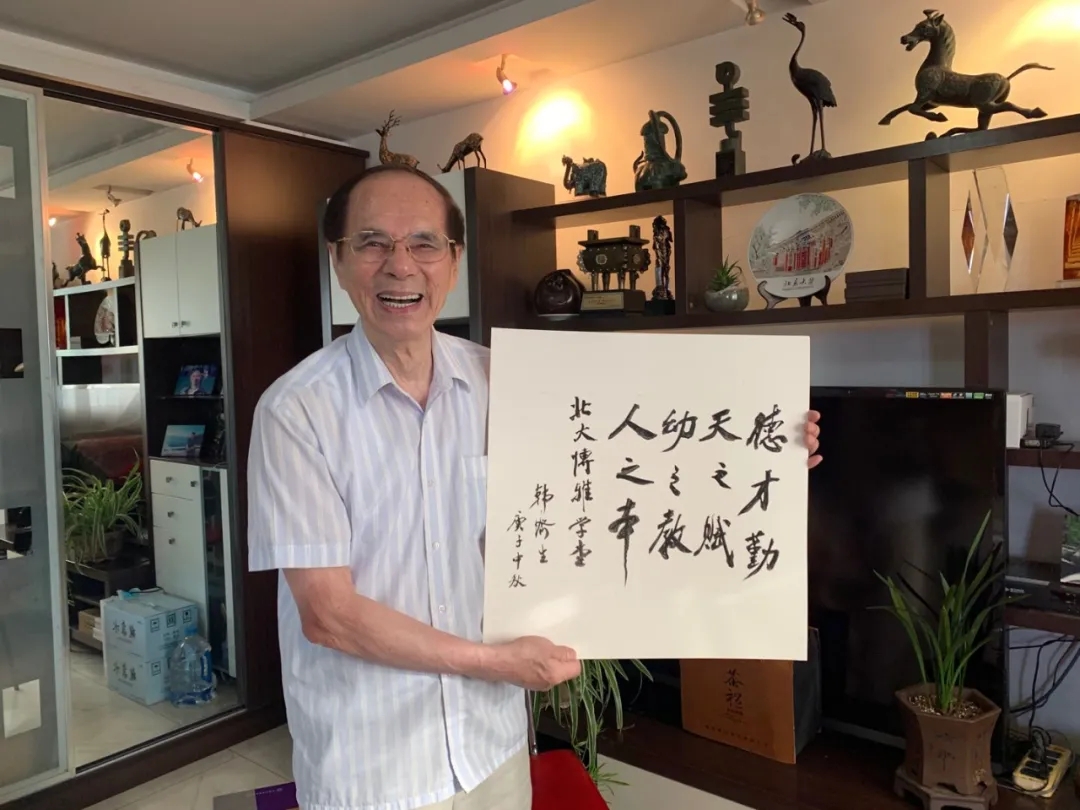 德才勤
天之赋
幼之教
人之本
北大博雅学堂
韩济生
庚子中秋
北京大学